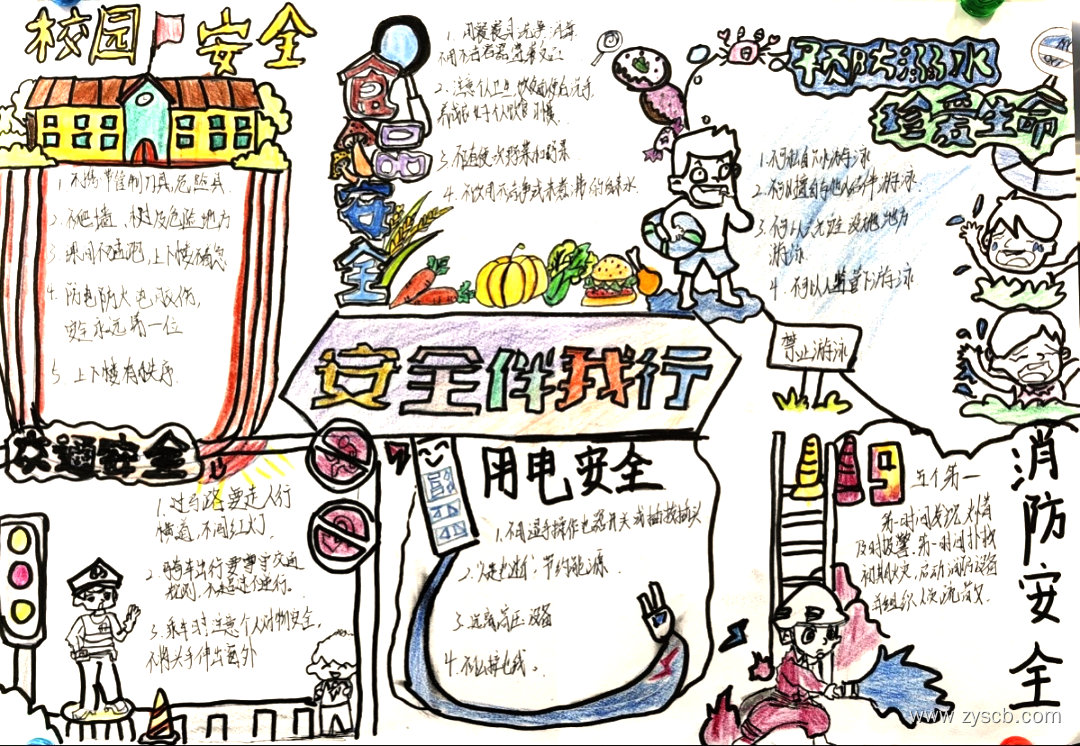 校园安全
1. 不携带管制刀具,危险具.
2. 不爬墙、树及危险地方
3. 课间不追跑,上下楼不
4. 防电防火
安全永远第一位
5. 上下楼有秩序.
食品安全
1.
2. 注意个人卫生,饭前便后洗手
养成良好个人饮食习惯.
3. 不食野菜和野果
4. 不饮用不的自来水.
预防溺水
珍爱生命
1. 不私自下水游泳
2. 不擅自与他人结伴游泳.
3. 不到无设施地方
游泳
4. 不到游泳
禁止游泳
安全伴我行
交通安全
1. 过马路要走人行
横道,不闯红灯.
2. 骑车出行要遵守交通
规则,不
3. 乘车时注意个人财物安全,
不将头手伸出窗外
用电安全
1. 不用湿手操作电器开关或插拔插头
2. 人走电断,节约能源.
3. 远离高压设备
4. 不私接电线。
消防安全
五个第一
第一时间发现火情
及时报警,第一时间扑救
初期火灾,启动消防设备
并组织人员疏散
www.zyscb.com